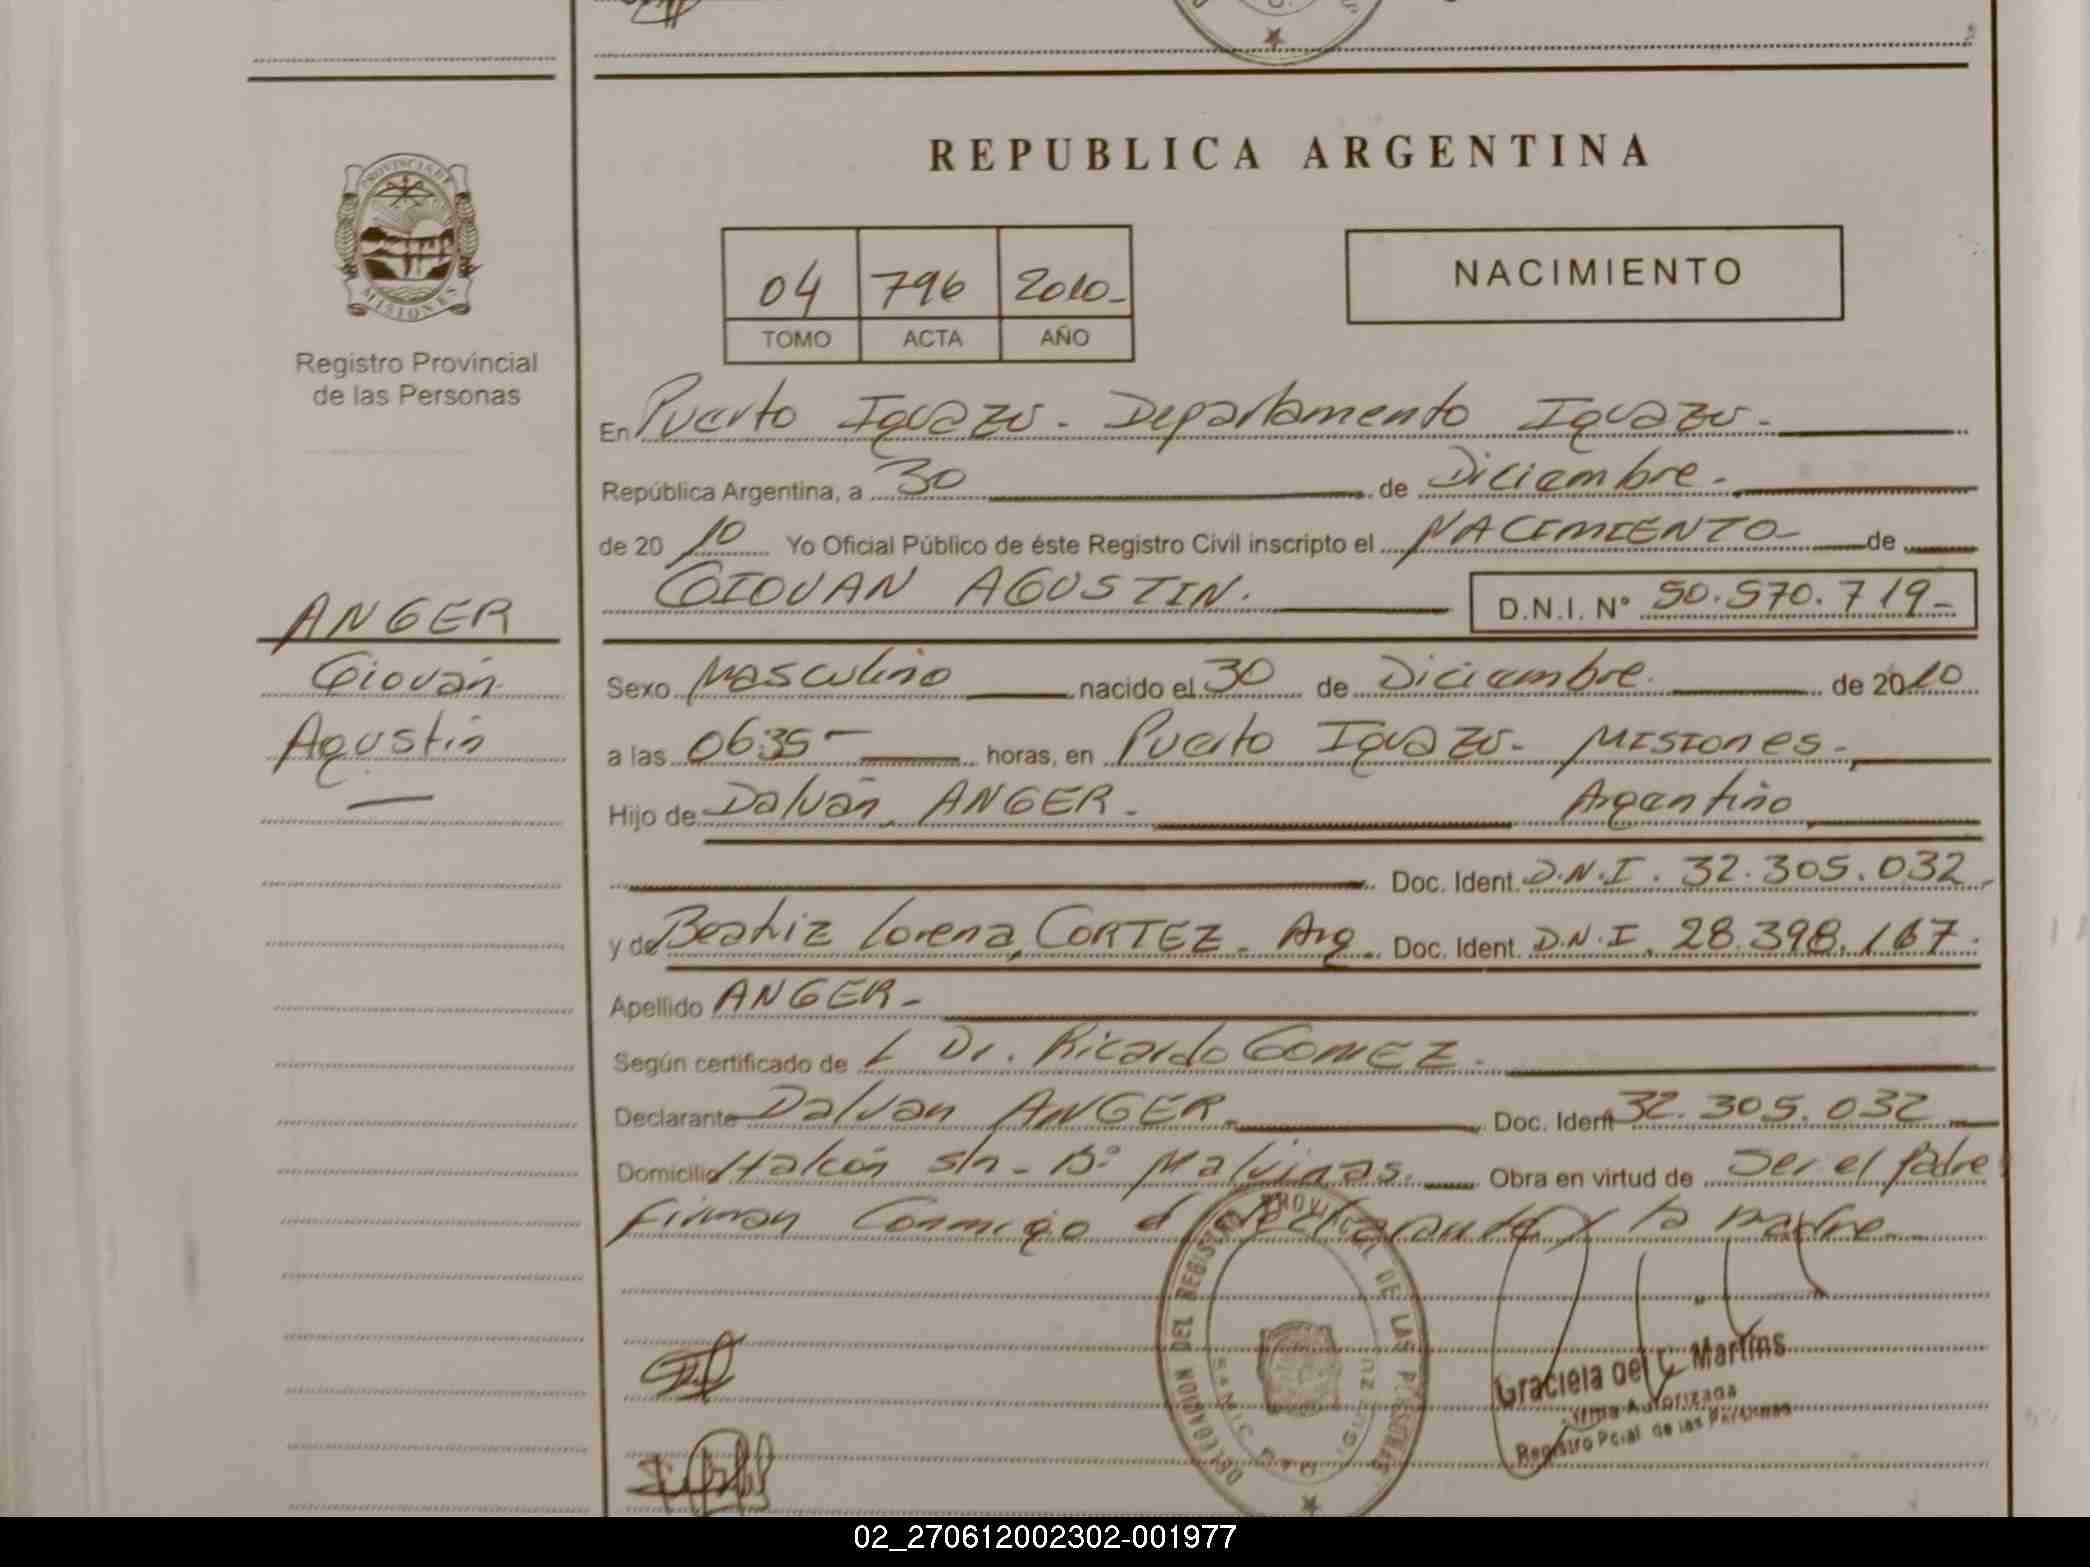 REPUBLICA ARGENTINA
PROVINCIA DE
MISIONES
Registro Provincial
de las Personas
04 796 2010-
TOMO ACTA AÑO
NACIMIENTO
En Puerto Iguazu - Departamento Iguazu -
República Argentina, a 30 de Diciembre -
de 2010 Yo Oficial Público de éste Registro Civil inscripto el NACIMIENTO de
GIOVAN AGUSTIN. D.N.I. N° 50.570.719-
ANGER
Giován
Agustín
Sexo Masculino nacido el 30 de Diciembre. de 2010
a las 06:35 - horas, en Puerto Iguazu - Misiones -
Hijo de Dalván ANGER - Argentino
Doc. Ident. D.N.I. 32.305.032
y de Beatriz Lorena CORTEZ - Arg. Doc. Ident. D.N.I. 28.398.167.
Apellido ANGER -
Según certificado de L Dr. Ricardo GOMEZ.
Declarante Dalvan ANGER Doc. Ident 32.305.032
Domicilio Halcón s/n - B° Malvinas. Obra en virtud de Ser el padre
Firman Conmigo el declarante y la madre.
DELEGACION DEL REGISTRO PROVINCIAL DE LAS PERSONAS
SAMIC PTO IGUAZU
Graciela del C. Martins
Firma Autorizada
Registro Pcial de las Personas
02_270612002302-001977